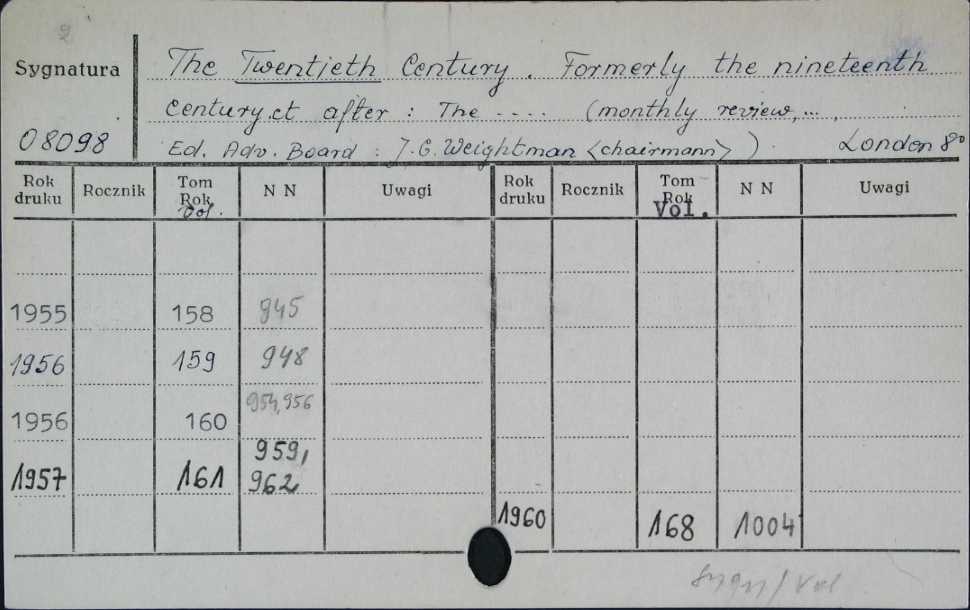 2
Sygnatura
The Twentieth Century. Formerly the nineteenth
century.ct after: The .... (monthly review,...,
08098
Ed. Adv. Board: J.G. Weightman <chairmann>). London 8°
Rok druku Rocznik Tom Rok vol. N N Uwagi Rok druku Rocznik Tom Rok Vol. N N Uwagi
1955 158 945
1956 159 948
1956 160 954,956
1957 161 959, 962
1960 168 1004
Vol